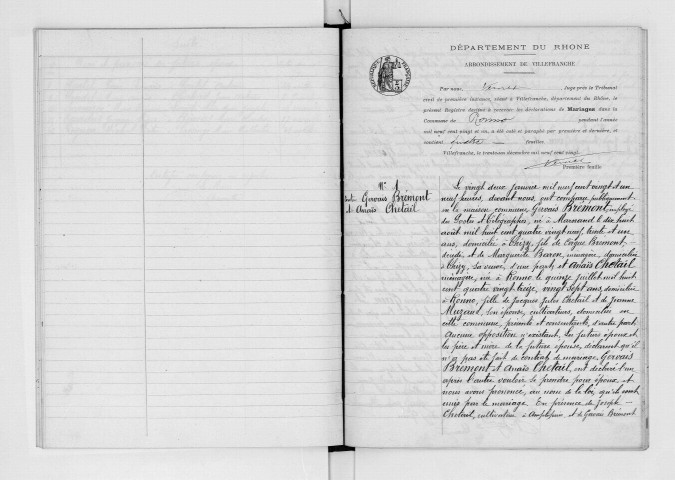 DÉPARTEMENT DU RHONE
ARRONDISSEMENT DE VILLEFRANCHE
Par nous, Juge près le Tribunal
civil de première instance, séant à Villefranche, département du Rhône, le
présent Registre destiné à contenir les déclarations de Mariages dans la
Commune de Ronno pendant l'année
mil neuf cent vingt et un, a été coté et paraphé par première et dernière, et
contient feuilles.
Villefranche, le trente-un décembre mil neuf cent vingt.
Première feuille
N° 1
Gervais Brémont
et Anaïs Chetail
Le vingt deux janvier mil neuf cent vingt et un
neuf heures, devant nous, ont comparu publiquement
en la maison commune, Gervais Brémont, employé
des Postes et Télégraphes, né à Marnand le dix huit
août mil huit cent quatre vingt neuf, trente et un
ans, domicilié à Thizy, fils de Brémont
et de Marguerite ménagère, domiciliée
à Thizy, sa veuve, d'une part, et Anaïs Chetail
ménagère, née à Ronno le quinze juillet mil huit
cent quatre vingt treize, vingt sept ans, domiciliée
à Ronno, fille de Jacques Jules Chetail et de Jeanne
son épouse, cultivateurs, domiciliés en
cette commune, présents et consentants, d'autre part.
Aucune opposition n'existant, les futurs époux et
les père et mère de la future épouse, déclarent qu'il
n'a pas été fait de contrat de mariage. Gervais
Brémont et Anaïs Chetail, ont déclaré l'un
après l'autre vouloir se prendre pour époux et
nous avons prononcé, au nom de la loi, qu'ils sont
unis par le mariage. En présence de Joseph
Chetail, cultivateur à Amplepuis et de Gervais Brémont